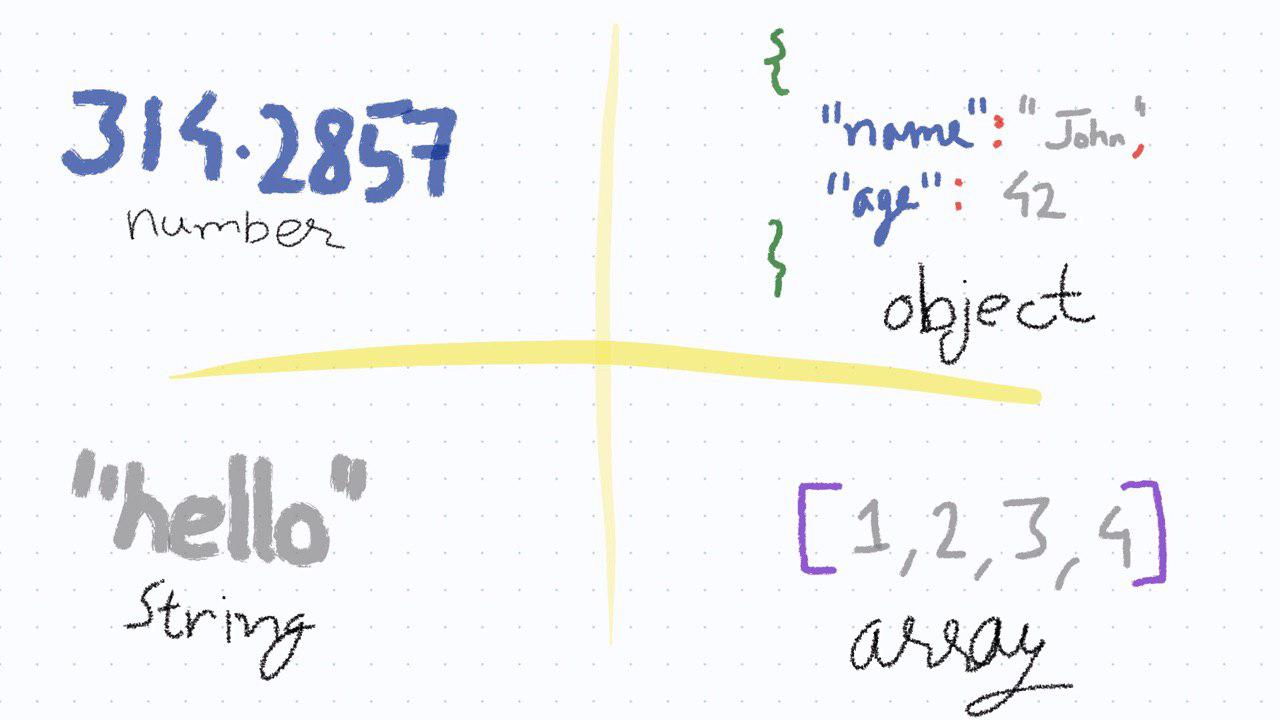 314.2857
number
{
"name": "John",
"age": 42
}
object
"hello"
string
[1, 2, 3, 4]
array